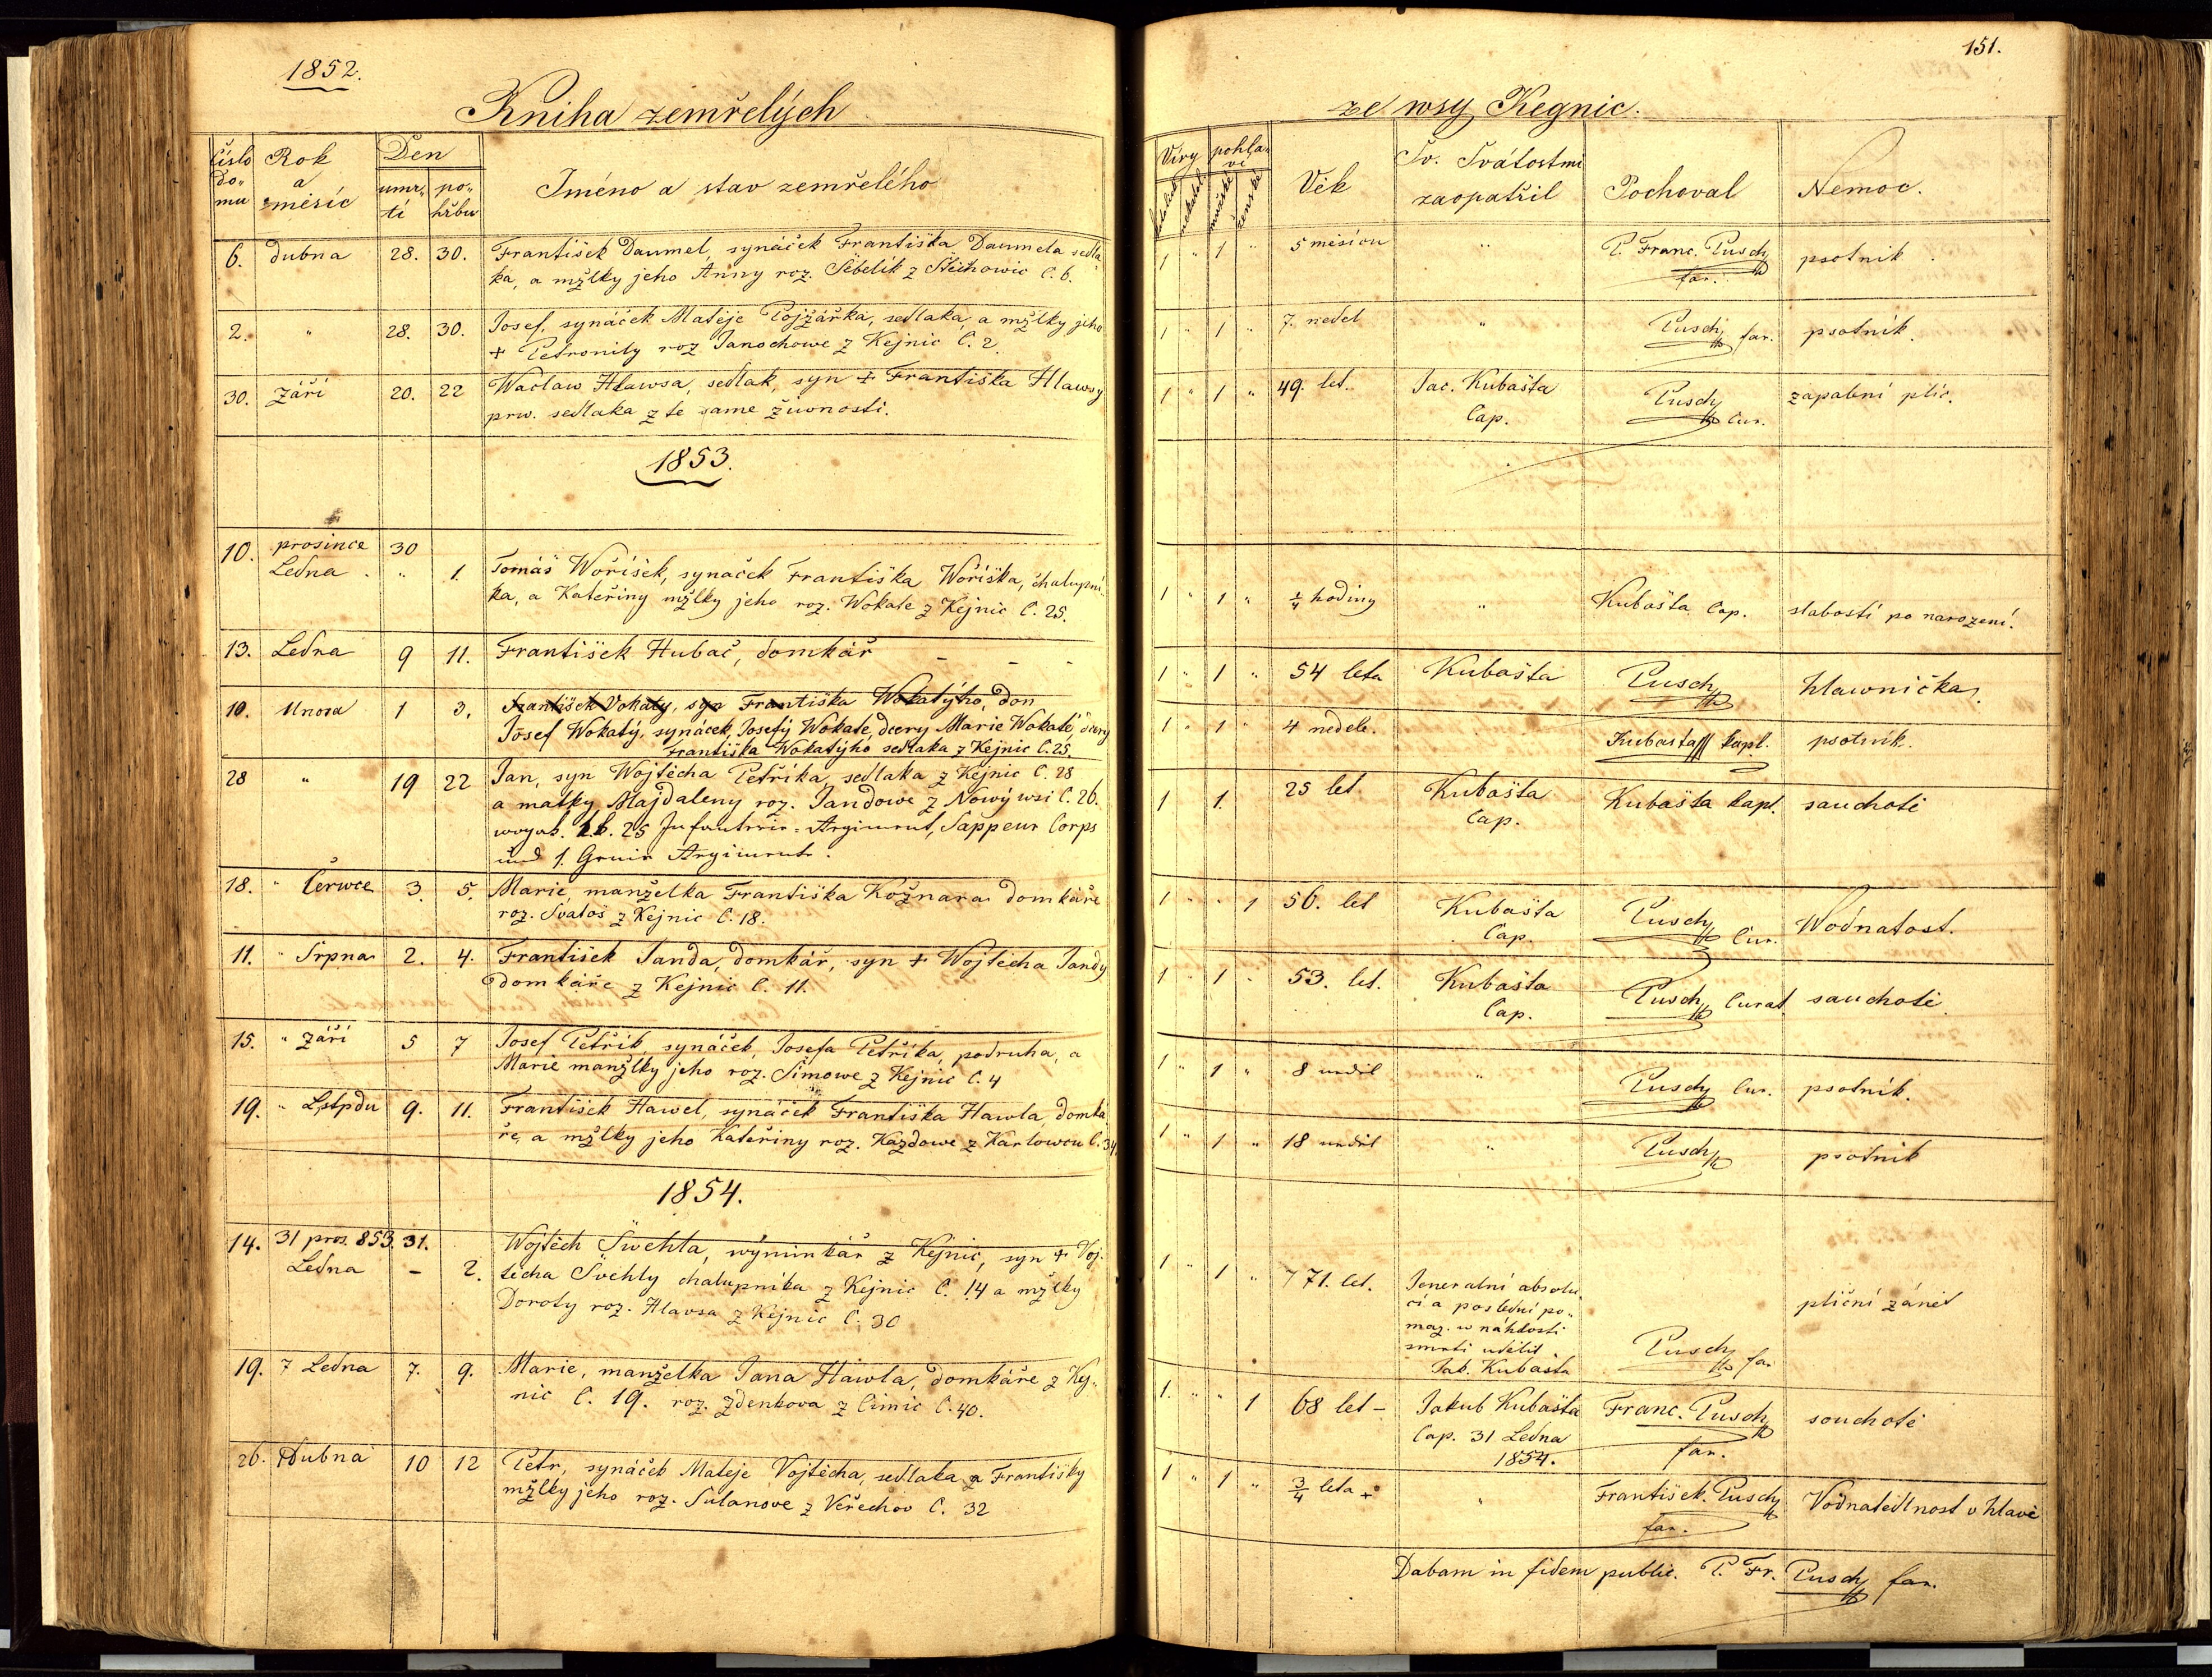 1852.
Kniha zemřelých
číslo domu
Rok a měsíc
Den
umrtí
pohřbu
Jméno a stav zemřelého
6. dubna 28. 30. František Daumel, synáček Františka Daumela sedla
ka, a mžlky jeho Anny roz. Šebelík z Štěchowic č. 6.
2. " 28. 30. Josef, synáček Matěje Pojžárka, sedlaka, a mžlky jeho
+ Petronily roz Janochowe z Kejnic č. 2
30. Září 20. 22 Waclaw Hlawsa, sedlak, syn + Františka Hlawsy
prw. sedlaka z te same žiwnosti.
1853.
10. prosince 30
Ledna . " 1. Tomáš Woříšek, synaček Františka Woříška, chalupní
ka, a Kateřiny mžlky jeho roz. Wokate z Kejnic č. 25.
13. Ledna 9 11. František Hubač, domkář - - -
10. Unora 1 3. František Vokaty, syn Františka Wokatýho, dom
Josef Wokatý, synáček, Josefy Wokate, dcery Marie Wokaté, dcery
Františka Wokatýho sedlaka z Kejnic č. 25.
28 " 19 22 Jan, syn Wojtěcha Petříka, sedlaka z Kejnic č. 28
a matky Majdaleny roz. Jandowe z Nowý wsi č. 26.
25 Infantrie=Regiment, Sappeur Corps
und 1. Genie Regiment.
18. " Čerwce 3. 5. Marie, manželka Františka Kožnara domkáře
roz. Svatoš z Kejnic č. 18.
11. " Srpna 2. 4. František Janda, domkář, syn + Wojtěcha Jandy
domkáře z Kejnic č. 11.
15. " Září 5 7 Josef Petřík synáček, Josefa Petříka, podruha, a
Marie manžlky jeho roz. Šimowe z Kejnic č. 4
19. " Lstpdu 9. 11. František Hawel, synáček Františka Hawla, domká
ře, a mžlky jeho Kateřiny roz. Kazdowe z Karlowcu č. 34.
1854.
14. 31 pros. 853. 31. Wojtěch Šwehla, wýminkář z Kejnic, syn + Voj-
Ledna - 2. těcha Švehly chalupníka z Kejnic č. 14 a mžlky
Doroty roz. Hlavsa z Kejnic č. 30
19. 7 Ledna 7. 9. Marie, manželka Jana Hawla, domkáře z Kej-
nic č. 19. roz. Zdenkova z Čimic č. 40.
26. Dubna 10 12 Petr, synáček Matěje Vojtěcha, sedlaka a Františky
mžlky jeho roz. Sulanove z Veřechov č. 32
151.
ze wsy Kegnic.
Víry
pohlaví
mužské
ženské
Věk
Sv. Svátostmi zaopatřil
Pochoval
Nemoc.
1 " 1 " 5 měsícu " P. Franc. Pusch far. psotnik
1 " 1 " 7. neděl " Pusch far. psotník.
1 " 1 " 49. let. Jac. Kubašta Cap. Pusch Cur. zapalení plic.
1 " 1 " ¼ hodiny " Kubašta Cap. slabostí po narozeni.
1 " 1 " 54 leta Kubašta Pusch hlawnička
1 " 1 " 4 neděle. Kubašta kapl. psotník.
1 1. 25 let Kubašta Cap. Kubašta kapl. sauchotě
1 " " 1 56. let Kubašta Cap. Pusch Cur. Wodnatost.
1 " 1 " 53. let. Kubašta Cap. Pusch Curat sauchotě
1 " 1 " 8 neděl " Pusch Cur. psotník.
1 " 1 " 18 neděl " Pusch psotnik
1 " 1 " 71. let. Jeneralní absolu-
cí a poslední po-
maz. w náhlosti
smrti udělil
Jak. Kubašta Pusch far plicní zánět
1. " " 1 68 let - Jakub Kubašta
Cap. 31 Ledna
1854. Franc. Pusch far. souchotě
1 " 1 " ¾ leta " František Pusch far. Vodnatedlnost v hlavě
Dabam in fidem public. P. Fr. Pusch far.